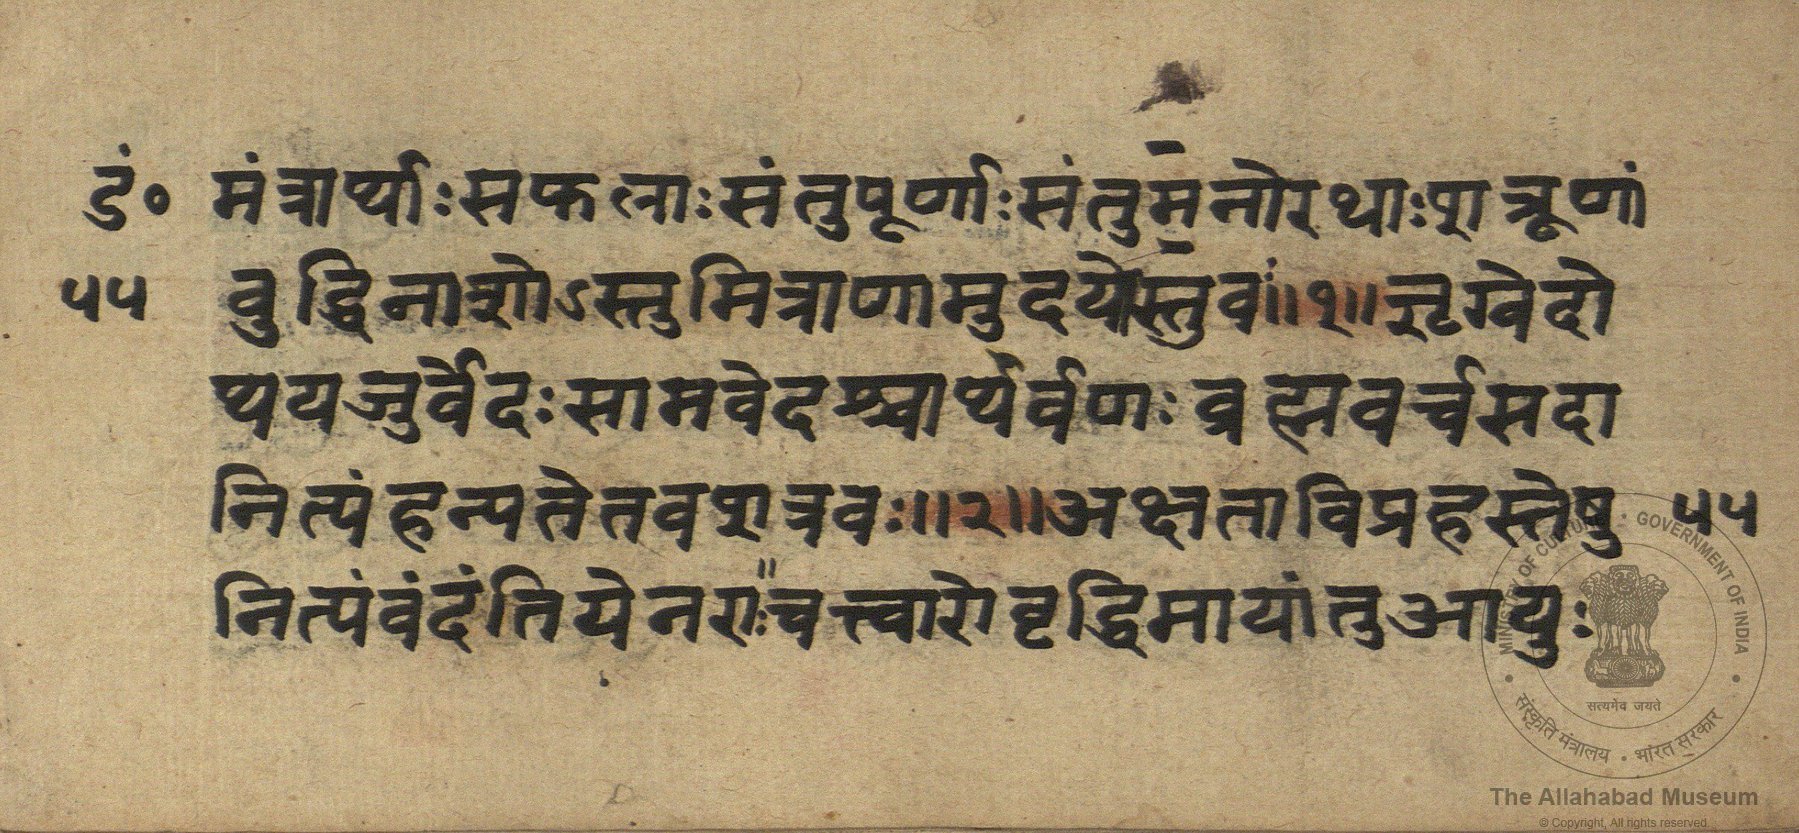 डुं० मंत्रार्थ्याः सफलाः संतु पूर्णाः संतु मनोरथाः शत्रूणां
५५ वुद्धिनाशोऽस्तु मित्राणामुदयोस्तु वः ॥१॥ ऋग्वेदो
थ्य यजुर्वेदः सामवेदश्चार्थ्यर्वणः व्रह्मवर्च्चसदा
नित्यं हन्यते तव शत्रवः ॥२॥ अक्षता विप्रहस्तेषु ५५
नित्यं वंदंति ये नराः चत्त्वारो वृद्धिमायांतु आयुः
MINISTRY OF CULTURE • GOVERNMENT OF INDIA
सत्यमेव जयते
संस्कृति मंत्रालय • भारत सरकार
The Allahabad Museum
© Copyright, All rights reserved.